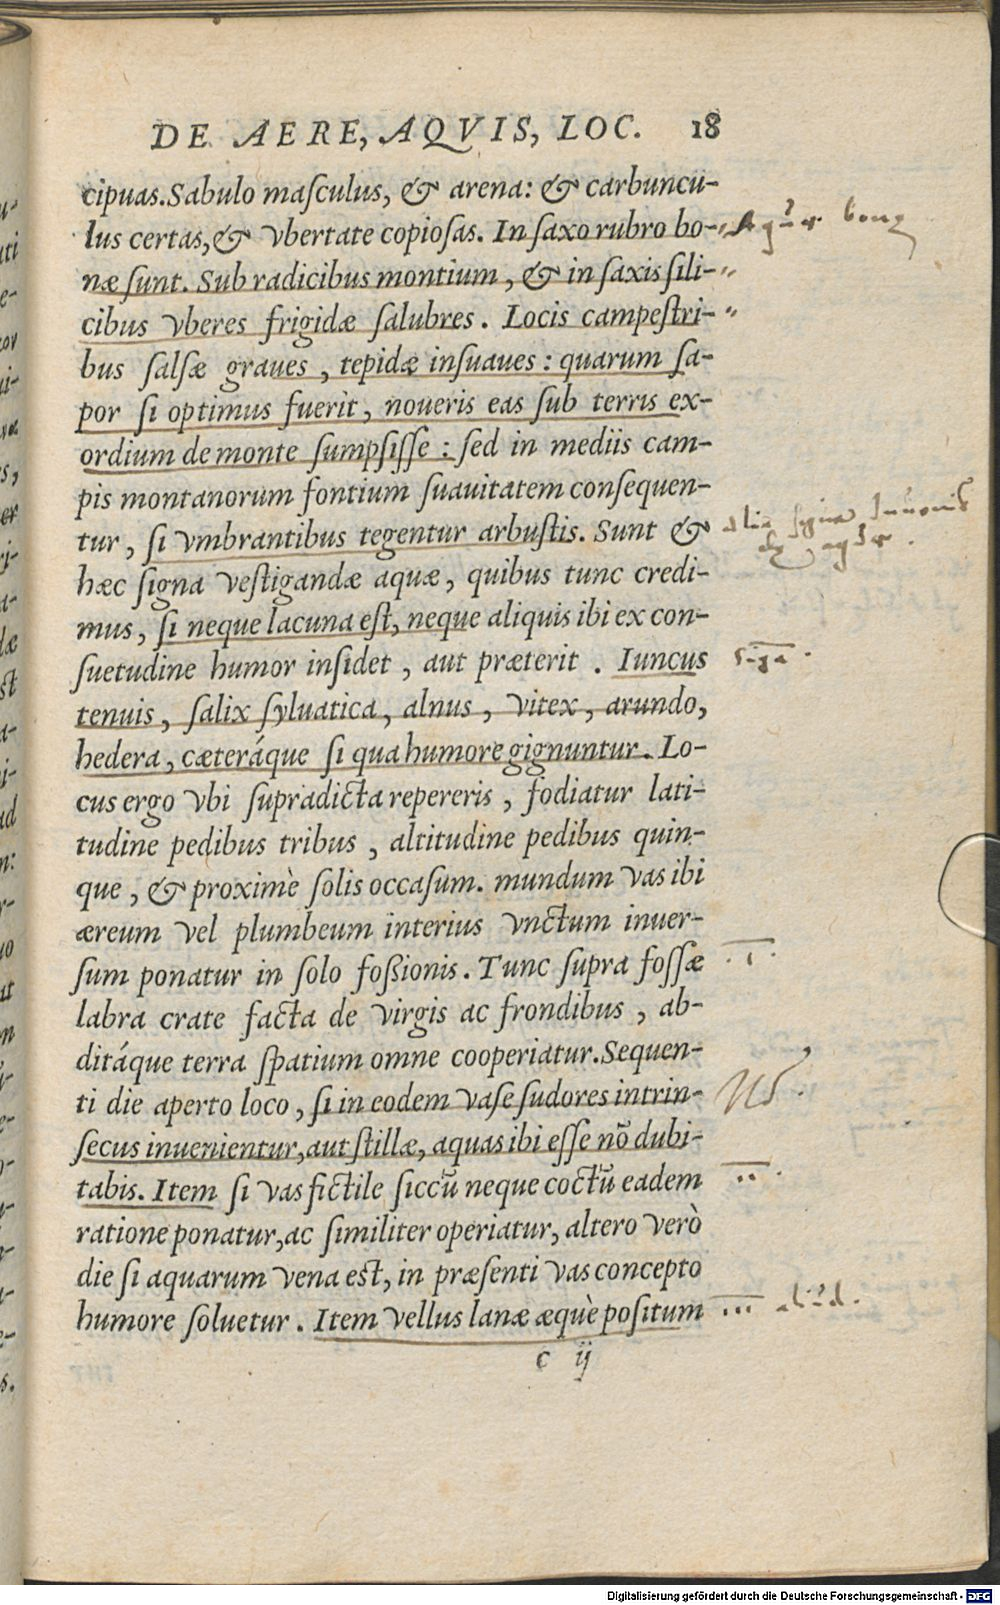 DE AERE, AQVIS, LOC. 18
cipuas. Sabulo maſculus, & arena: & carbuncu-
lus certas, & vbertate copioſas. In ſaxo rubro bo-
næ ſunt. Sub radicibus montium, & in ſaxis ſili-
cibus vberes frigidæ ſalubres. Locis campeſtri-
bus ſalſæ graues, tepidæ inſuaues: quarum ſa-
por ſi optimus fuerit, noueris eas ſub terris ex-
ordium de monte ſumpſiſſe: ſed in mediis cam-
pis montanorum fontium ſuauitatem conſequen-
tur, ſi vmbrantibus tegentur arbuſtis. Sunt &
hæc ſigna veſtigandæ aquæ, quibus tunc credi-
mus, ſi neque lacuna eſt, neque aliquis ibi ex con-
ſuetudine humor inſidet, aut præterit. Iuncus
ſigna.
tenuis, ſalix ſyluatica, alnus, vitex, arundo,
hedera, cæteráque ſi qua humore gignuntur. Lo-
cus ergo vbi ſupradicta repereris, fodiatur lati-
tudine pedibus tribus, altitudine pedibus quin-
que, & proximè ſolis occaſum. mundum vas ibi
æreum vel plumbeum interius vnctum inuer-
ſum ponatur in ſolo foßionis. Tunc ſupra foſſæ
labra crate facta de virgis ac frondibus, ab-
ditáque terra ſpatium omne cooperiatur. Sequen-
ti die aperto loco, ſi in eodem vaſe ſudores intrin-
ſecus inuenientur, aut ſtillæ, aquas ibi eſſe nõ dubi-
tabis. Item ſi vas fictile ſiccũ neque coctũ eadem
ratione ponatur, ac ſimiliter operiatur, altero verò
die ſi aquarum vena eſt, in præſenti vas concepto
humore ſoluetur. Item vellus lanæ æquè poſitum
c ij
Digitalisierung gefördert durch die Deutsche Forschungsgemeinschaft - DFG